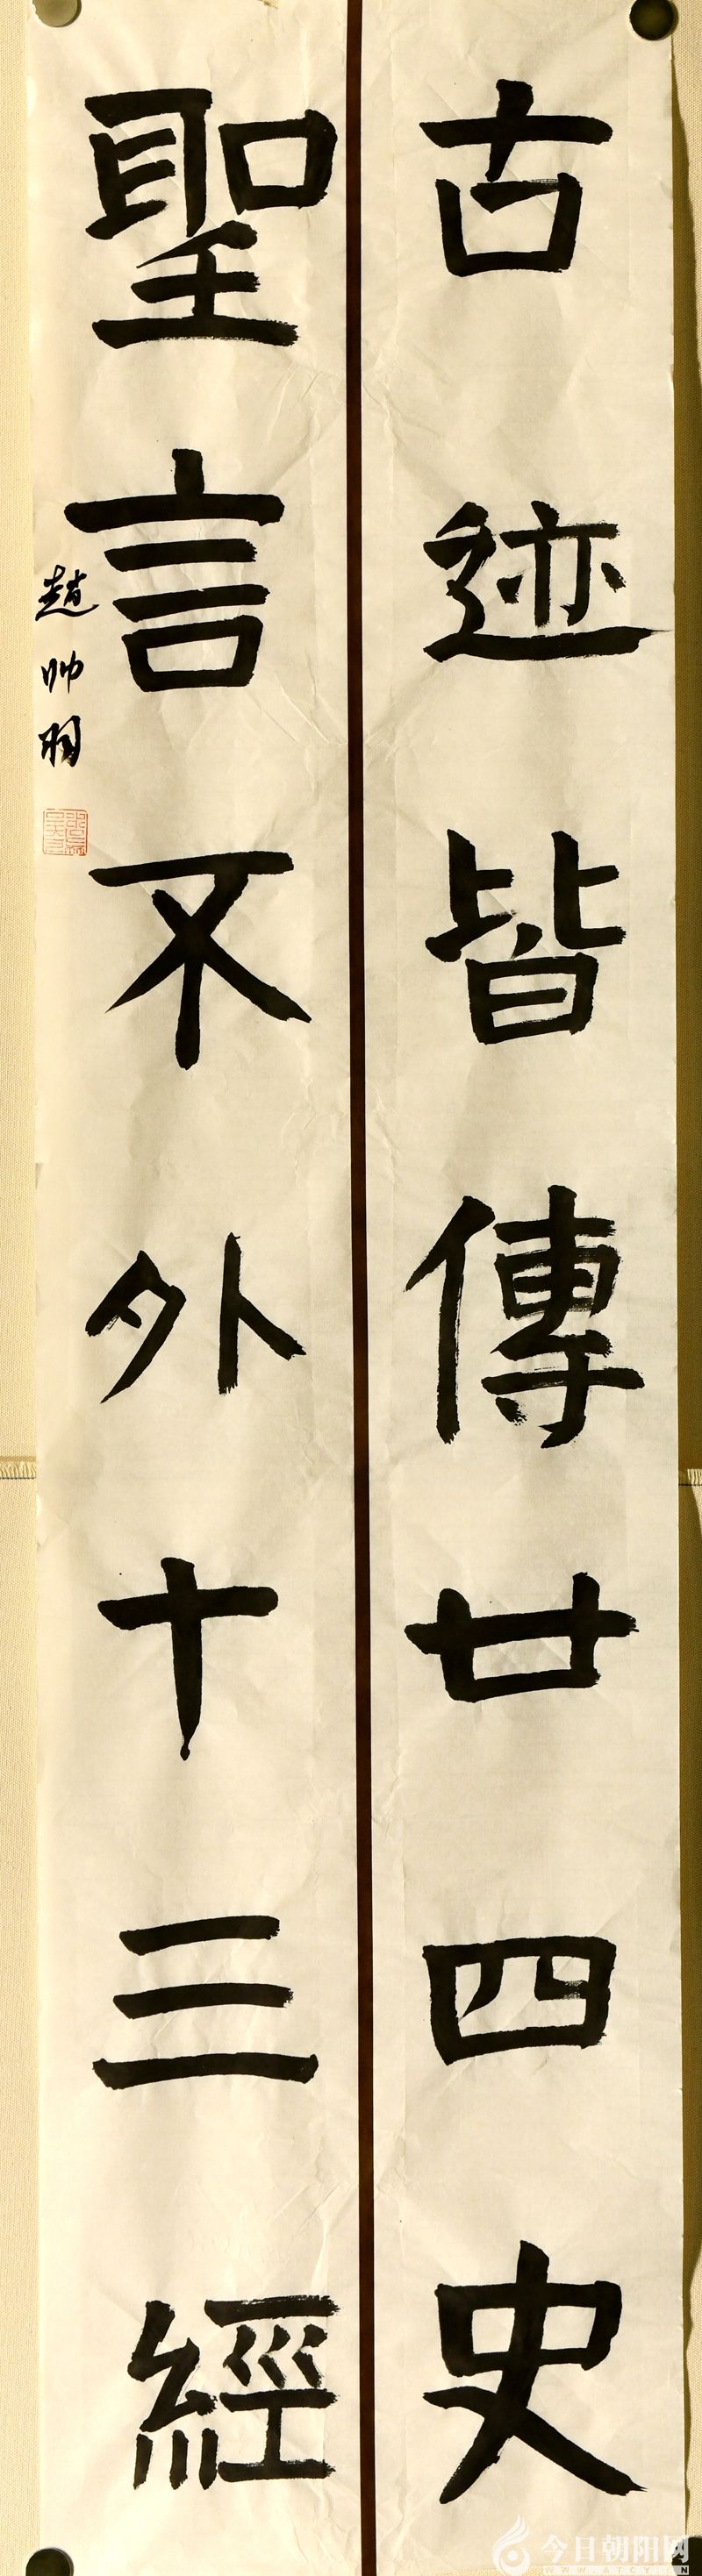 古迹皆傳廿四史
聖言不外十三經
趙帅羽
今日朝阳网